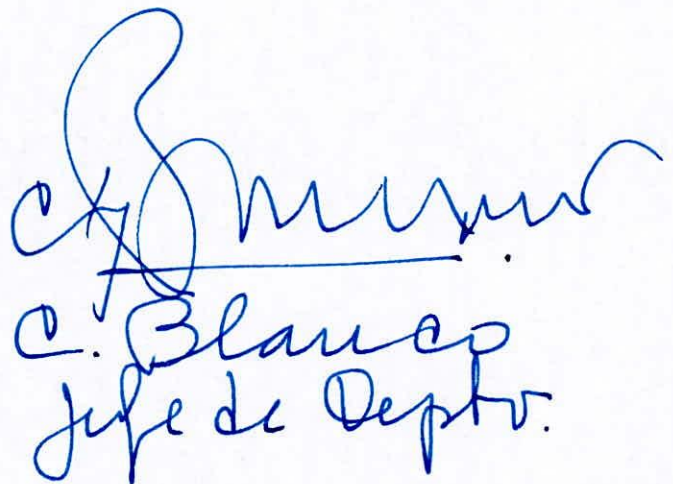 C. Blanco
Jefe de Depto.